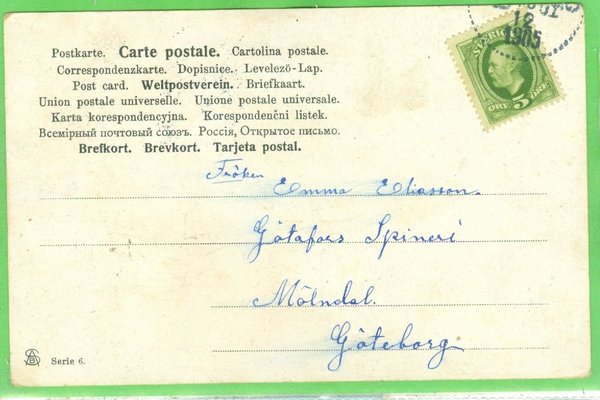 Postkarte. Carte postale. Cartolina postale.
Correspondenzkarte. Dopisnice. Levelező-Lap.
Post card. Weltpostverein. Briefkaart.
Union postale universelle. Unione postale universale.
Karta korespondencyjna. Korespondenční listek.
Всемірный почтовый союзъ. Россія, Открытое письмо.
Brefkort. Brevkort. Tarjeta postal.
SVERIGE
ÖRE 5 ÖRE
12
1905
Fröken
Emma Eliasson.
Götafors Spineri
Mölndal.
Göteborg
Serie 6.